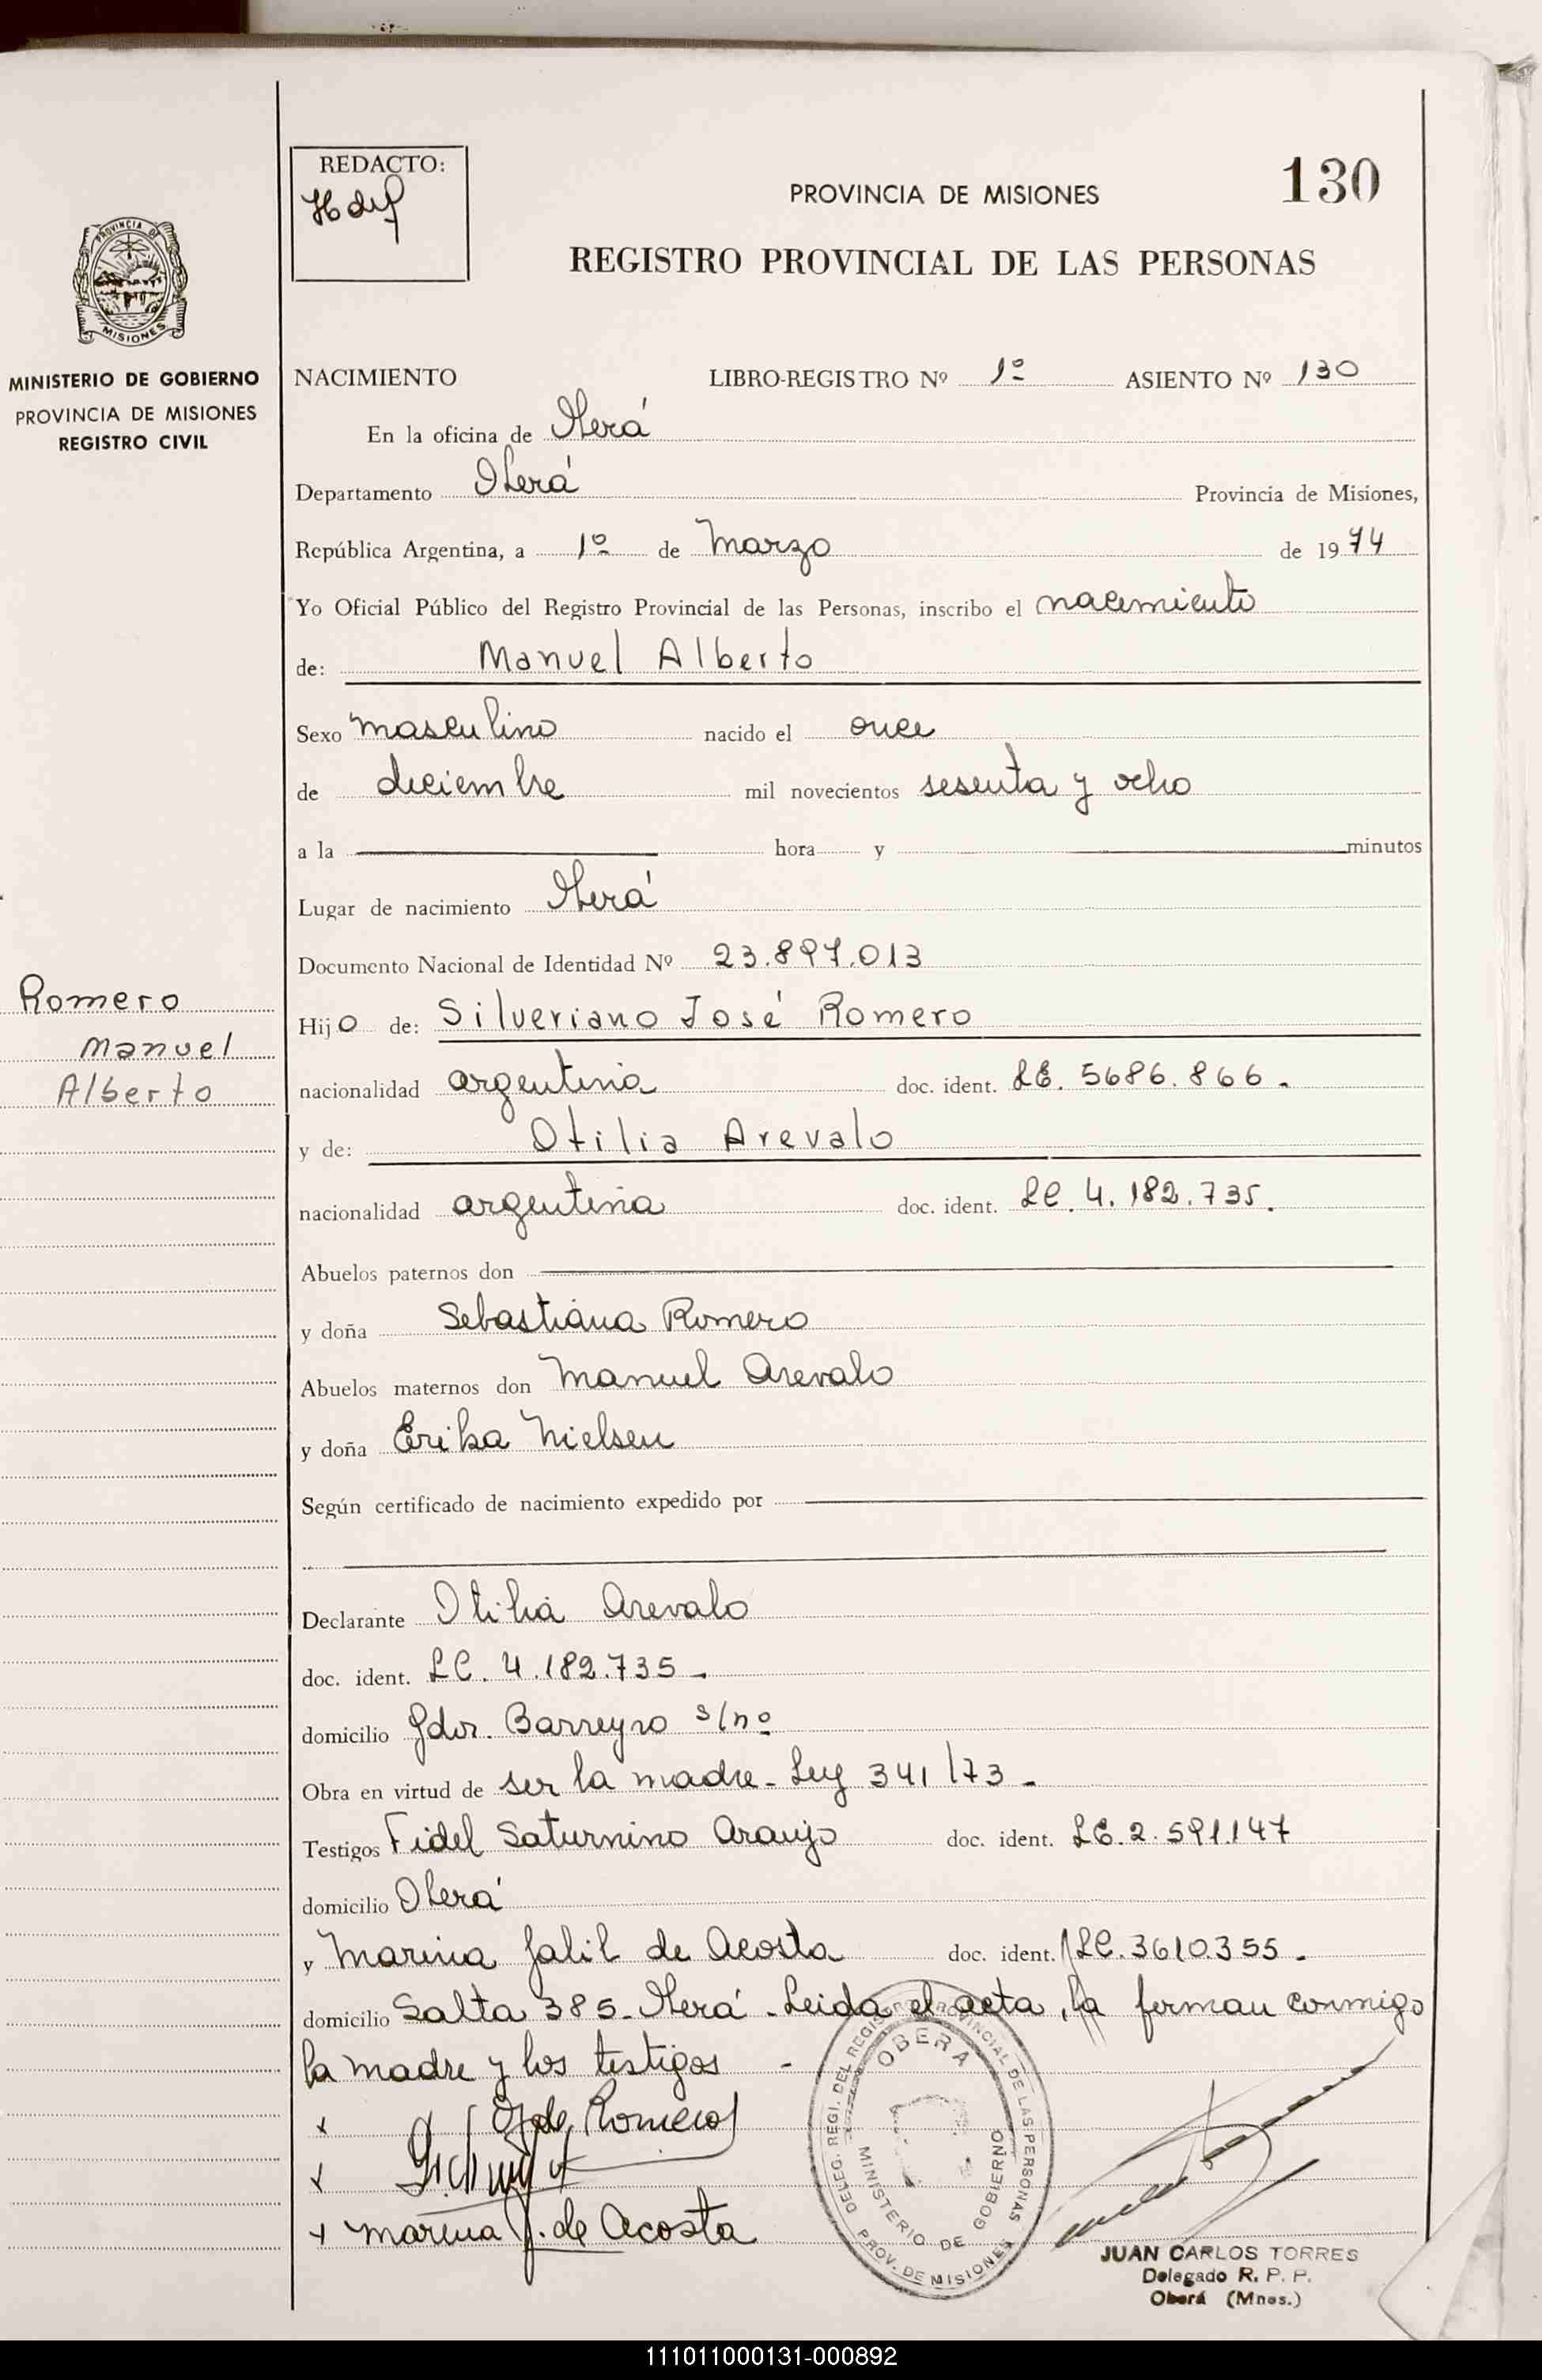 130
REDACTO:
PROVINCIA DE MISIONES
REGISTRO PROVINCIAL DE LAS PERSONAS
PROVINCIA DE
MISIONES
MINISTERIO DE GOBIERNO
PROVINCIA DE MISIONES
REGISTRO CIVIL
NACIMIENTO LIBRO-REGISTRO Nº 1º ASIENTO Nº 130
En la oficina de Oberá
Departamento Oberá Provincia de Misiones,
República Argentina, a 1º de Marzo de 1974
Yo Oficial Público del Registro Provincial de las Personas, inscribo el nacimiento
de: Manuel Alberto
Sexo masculino nacido el once
de diciembre mil novecientos sesenta y ocho
a la hora y minutos
Lugar de nacimiento Oberá
Documento Nacional de Identidad Nº 23.897.013
Romero
Manuel
Alberto
Hijo de: Silveriano José Romero
nacionalidad argentina doc. ident. LE. 5686.866.
y de: Otilia Arevalo
nacionalidad argentina doc. ident. LC. 4.182.735.
Abuelos paternos don
y doña Sebastiana Romero
Abuelos maternos don Manuel Arevalo
y doña Erika Nielsen
Según certificado de nacimiento expedido por
Declarante Otilia Arevalo
doc. ident. LC. 4.182.735.
domicilio Gdor. Barreyro s/nº
Obra en virtud de ser la madre - Ley 341/73 -
Testigos Fidel Saturnino Araujo doc. ident. LE. 2.591.147
domicilio Oberá
y Marina Jalil de Acosta doc. ident. LC. 3610.355.
domicilio Salta 385 - Oberá - Leida el acta, la forman conmigo
la madre y los testigos -
x O. de Romero
x
x Marina J. de Acosta
DELEG. REGI. DEL REGISTRO PROVINCIAL DE LAS PERSONAS
OBERA
MINISTERIO DE GOBIERNO
PROV. DE MISIONES
JUAN CARLOS TORRES
Delegado R. P. P.
Oberá (Mnes.)
111011000131-000892